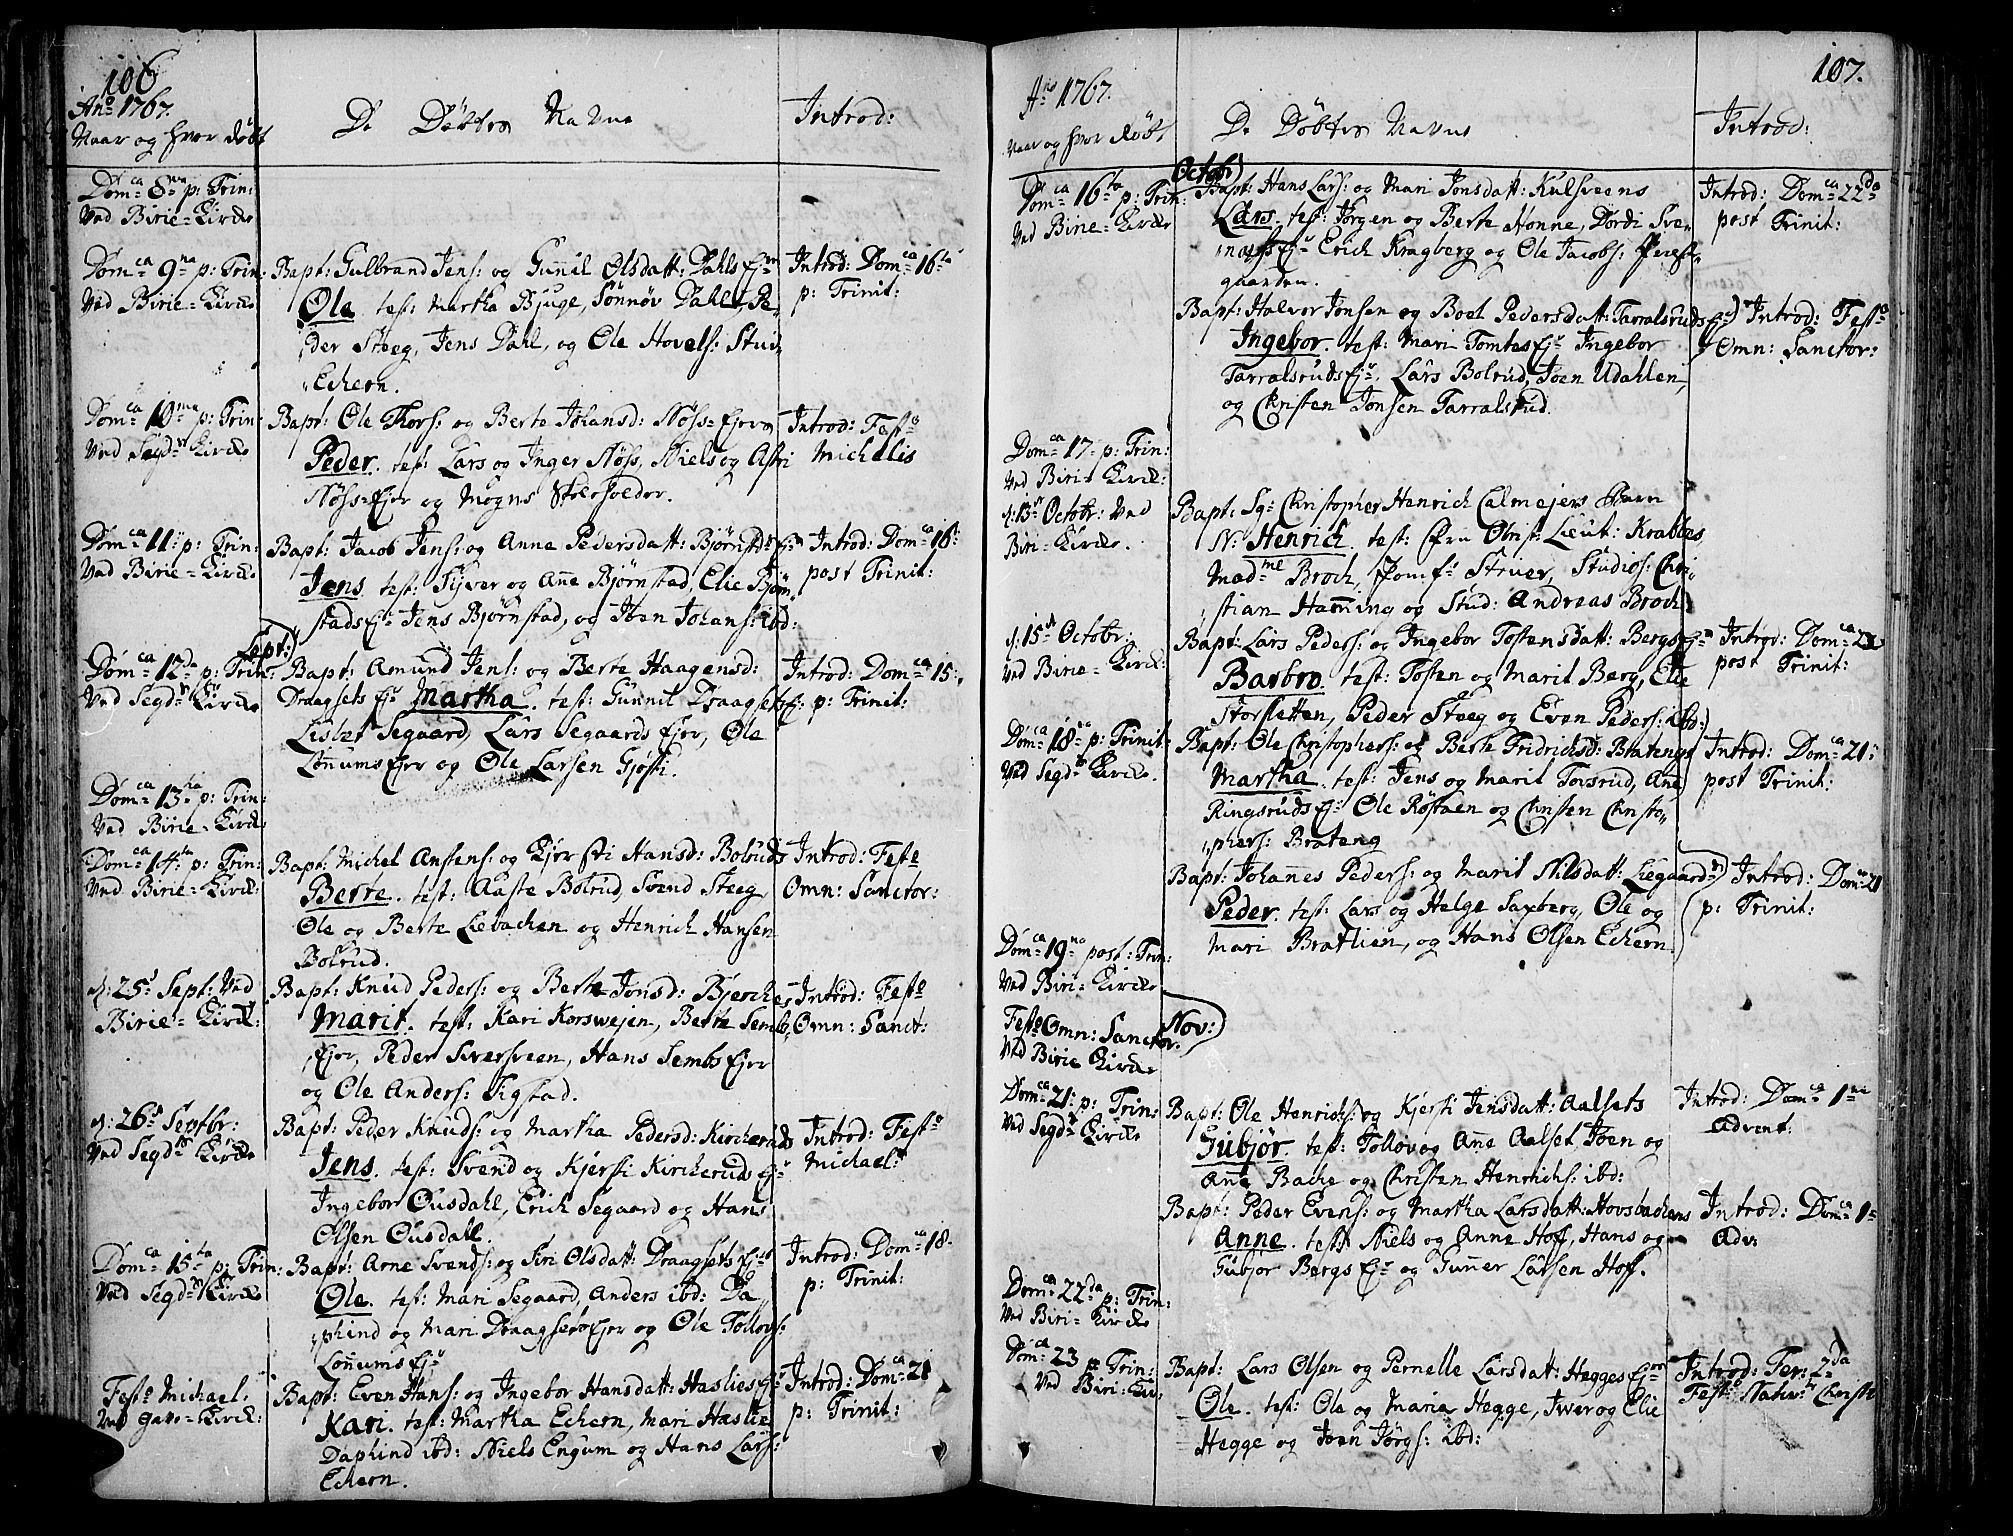 106
Anº 1767.
Naar og hvor døbt
De Døbtes Navne
Introd:
Domca 8va p: Trin:
Ved Birie=Kircke
Domca 9na p: Trin:
Ved Birie=Kircke
Bapt: Gulbrand Jens: og Gunnil Olsdatt: Dahls Ejer
Ole test: Martha Bjuge, Sønnøv Dahl, Pe=
der Steeg, Jens Dahl, og Ole Hovels: Stui=
Echern.
Introd: Domca 16ta
p: Trinit:
Domca 10ma p: Trin:
Ved Segdr Kircke
Bapt: Ole Thors: og Berte Johansd: Nøss=Ejer
Peder. test: Lars og Inger Nøss, Niels og Astri
Nøss=Ejer og Mogns Skoleholder.
Introd: Festo
Michelis
Domca 11: p: Trin:
Ved Birie=Kircke
Bapt: Jacob Jens: og Anne Pedersdatt: Bjørnstds Ejr
Jens. test: Syver og Anne Bjørnstad, Elie Bjørn=
stads Ejr Jens Bjørnstad, og Iben Johans: ibd:
Introd: Domca 16:
post Trinit:
Sept:
Domca 12da p: Trin:
Ved Segdr Kircke
Bapt: Amund Jens: og Berte Haagensd:
Draagsets Ejr Martha. test: Gunnil Draagsets Ej:
Lisbet Segaard, Lars Segaards Ejer, Ole
Lønnums Ejer og Ole Larsen Gjøsti.
Introd: Domca 15:
p: Trinit:
Domca 13tia p: Trin:
Ved Birie=Kircke
Domca 14ta p: Trin:
Ved Birie=Kircke
Bapt: Michel Anstens: og Kjersti Hansd: Bolruds
Berte. test: Aaste Bolrud, Svend Steeg
Ole og Berte Liebachen og Henrich Hansen
Bolrud.
Introd: Festo
Omn: Sanctor:
d: 25de Sept: Ved
Birie=Kirck:
Bapt: Knud Peders: og Berte Jonsd: Bjerches
Marit. test: Kari Korswejen, Berte Sembs
Ejer, Peder Sversveen, Hans Sembs Ejer
og Ole Anders: Sigstad.
Introd: Festo
Omn: Sanct:
d: 26de Septbr:
Ved Segdr Kircke
Bapt: Peder Knuds: og Martha Pedersd: Kircheruds
Jens. test: Svend og Kjersti Kircherud Ejr
Ingebor Ousdahl, Erich Segaard og Hans
Olsen Ousdahl.
Introd: Festo
Michael:
Domca 15ta p: Trin:
Ved Segdr Kircke
Bapt: Arne Svends: og Siri Olsdatt: Draagsets Ejr
Ole. test: Mari Segaard, Anders ibd: Da=
phind og Mari Draagsets Ejer og Ole Tollovs:
Lønnums Ejr
Introd: Domca 18.
p: Trinit:
Festo Michael:
Ved Kirck:
Bapt: Even Hans: og Ingebor Hansdatt: Haslies Ejr
Kari. test: Martha Echern, Mari Haslie
Daphind ibd: Niels Engum og Hans Lars:
Echern.
Introd: Domca 21
p: Trinit:
107.
Aº 1767.
Naar og hvor døbt
De Døbtes Navne
Introd:
Octobr
Domca 16ta p: Trin:
Ved Birie=Kircke
Bapt: Hans Lars: og Mari Jonsdatt: Kulsveens
Lars. test: Jørgen og Berte Honne, Dordi Sve=
næss Ejr Erich Kragberg og Ole Jacobs: Prest=
gaarden.
Introd: Domca 22da
post Trinit:
Bapt: Halvor Jonsen og Boel Pedersdatt: Tarralsruds Ejr
Ingebor. test: Mari Tomtes Ejr Ingebor
Tarralsruds Ejr, Lars Bolrud, Joen Udahlen,
og Christen Jonsen Tarralsrud.
Introd: Festo
Omn: Sanctor:
Domca 17. p: Trin:
Ved Birie Kirck:
d: 13de Octobr: Ved
Biri=Kircke.
Bapt: Sg: Christopher Henrich Calmejers Barn
N: Henrich. test: Fru Obrist Lieut: Krabbes
Madme Broch, Jomf: Struer, Studios: Chri=
stian Hamming og Stud: Andreas Broch
d: 15de Octobr:
Ved Birie=Kirck:
Bapt: Lars Peders: og Ingebor Tostensdatt: Bergs Ejr
Barbro. test: Tosten og Marit Berg, Elie
Storsletten, Peder Steeg og Even Peders: ibd:
Introd: Domca 23
post Trinit:
Domca 18va p: Trinit:
Ved Segdr Kircke.
Bapt: Ole Christophers: og Berte Fridrichsd: Bratengs
Martha. test: Jens og Marit Tovsrud, Anne
Ringsruds Ejr Ole Røstaen og Christen Christo=
phers: Brateng
Introd: Domca 21:
post Trinit:
Bapt: Johannes Peders: og Marit Nilsdatt: Liegaardr
Peder. test: Lars og Helge Saxberg, Ole og
Mari Bratlien, og Hans Olsen Echern.
Introd: Domca 21
p: Trinit:
Domca 19na post: Trin:
Ved Biri=Kircke
Nov:
Festo Omn: Sanctor.
Ved Birie Kircke
Domca 21: p: Trin:
Ved Segdr Kircke
Bapt: Ole Henrichs: og Kjersti Jensdatt: Aalsets
Gubjør. test: Tollov og Anne Aalset, Joen og
Anne Bache og Christen Henrichs: ibd:
Introd: Domca 1ma
Advent:
Bapt: Peder Evens: og Martha Larsdatt: Hovsbachens
Anne. test: Niels og Anne Hoff, Hans og
Gubjor Bergs Ejr og Gunner Larsen Hoff.
Introd: Domca 1ma
Adv:
Domca 22da p: Trin:
Ved Biri=Kircke
Domca 23 p: Trin:
Ved Biri=Kir:
Bapt: Lars Olsen og Pernelle Larsdatt: Hegges Ejer
Ole. test: Ole og Maria Hegge, Iwer og Elie
Hegge og Joen Jørgs: ibd:
Introd: Fer: 2da
Festo Nativ: Christi